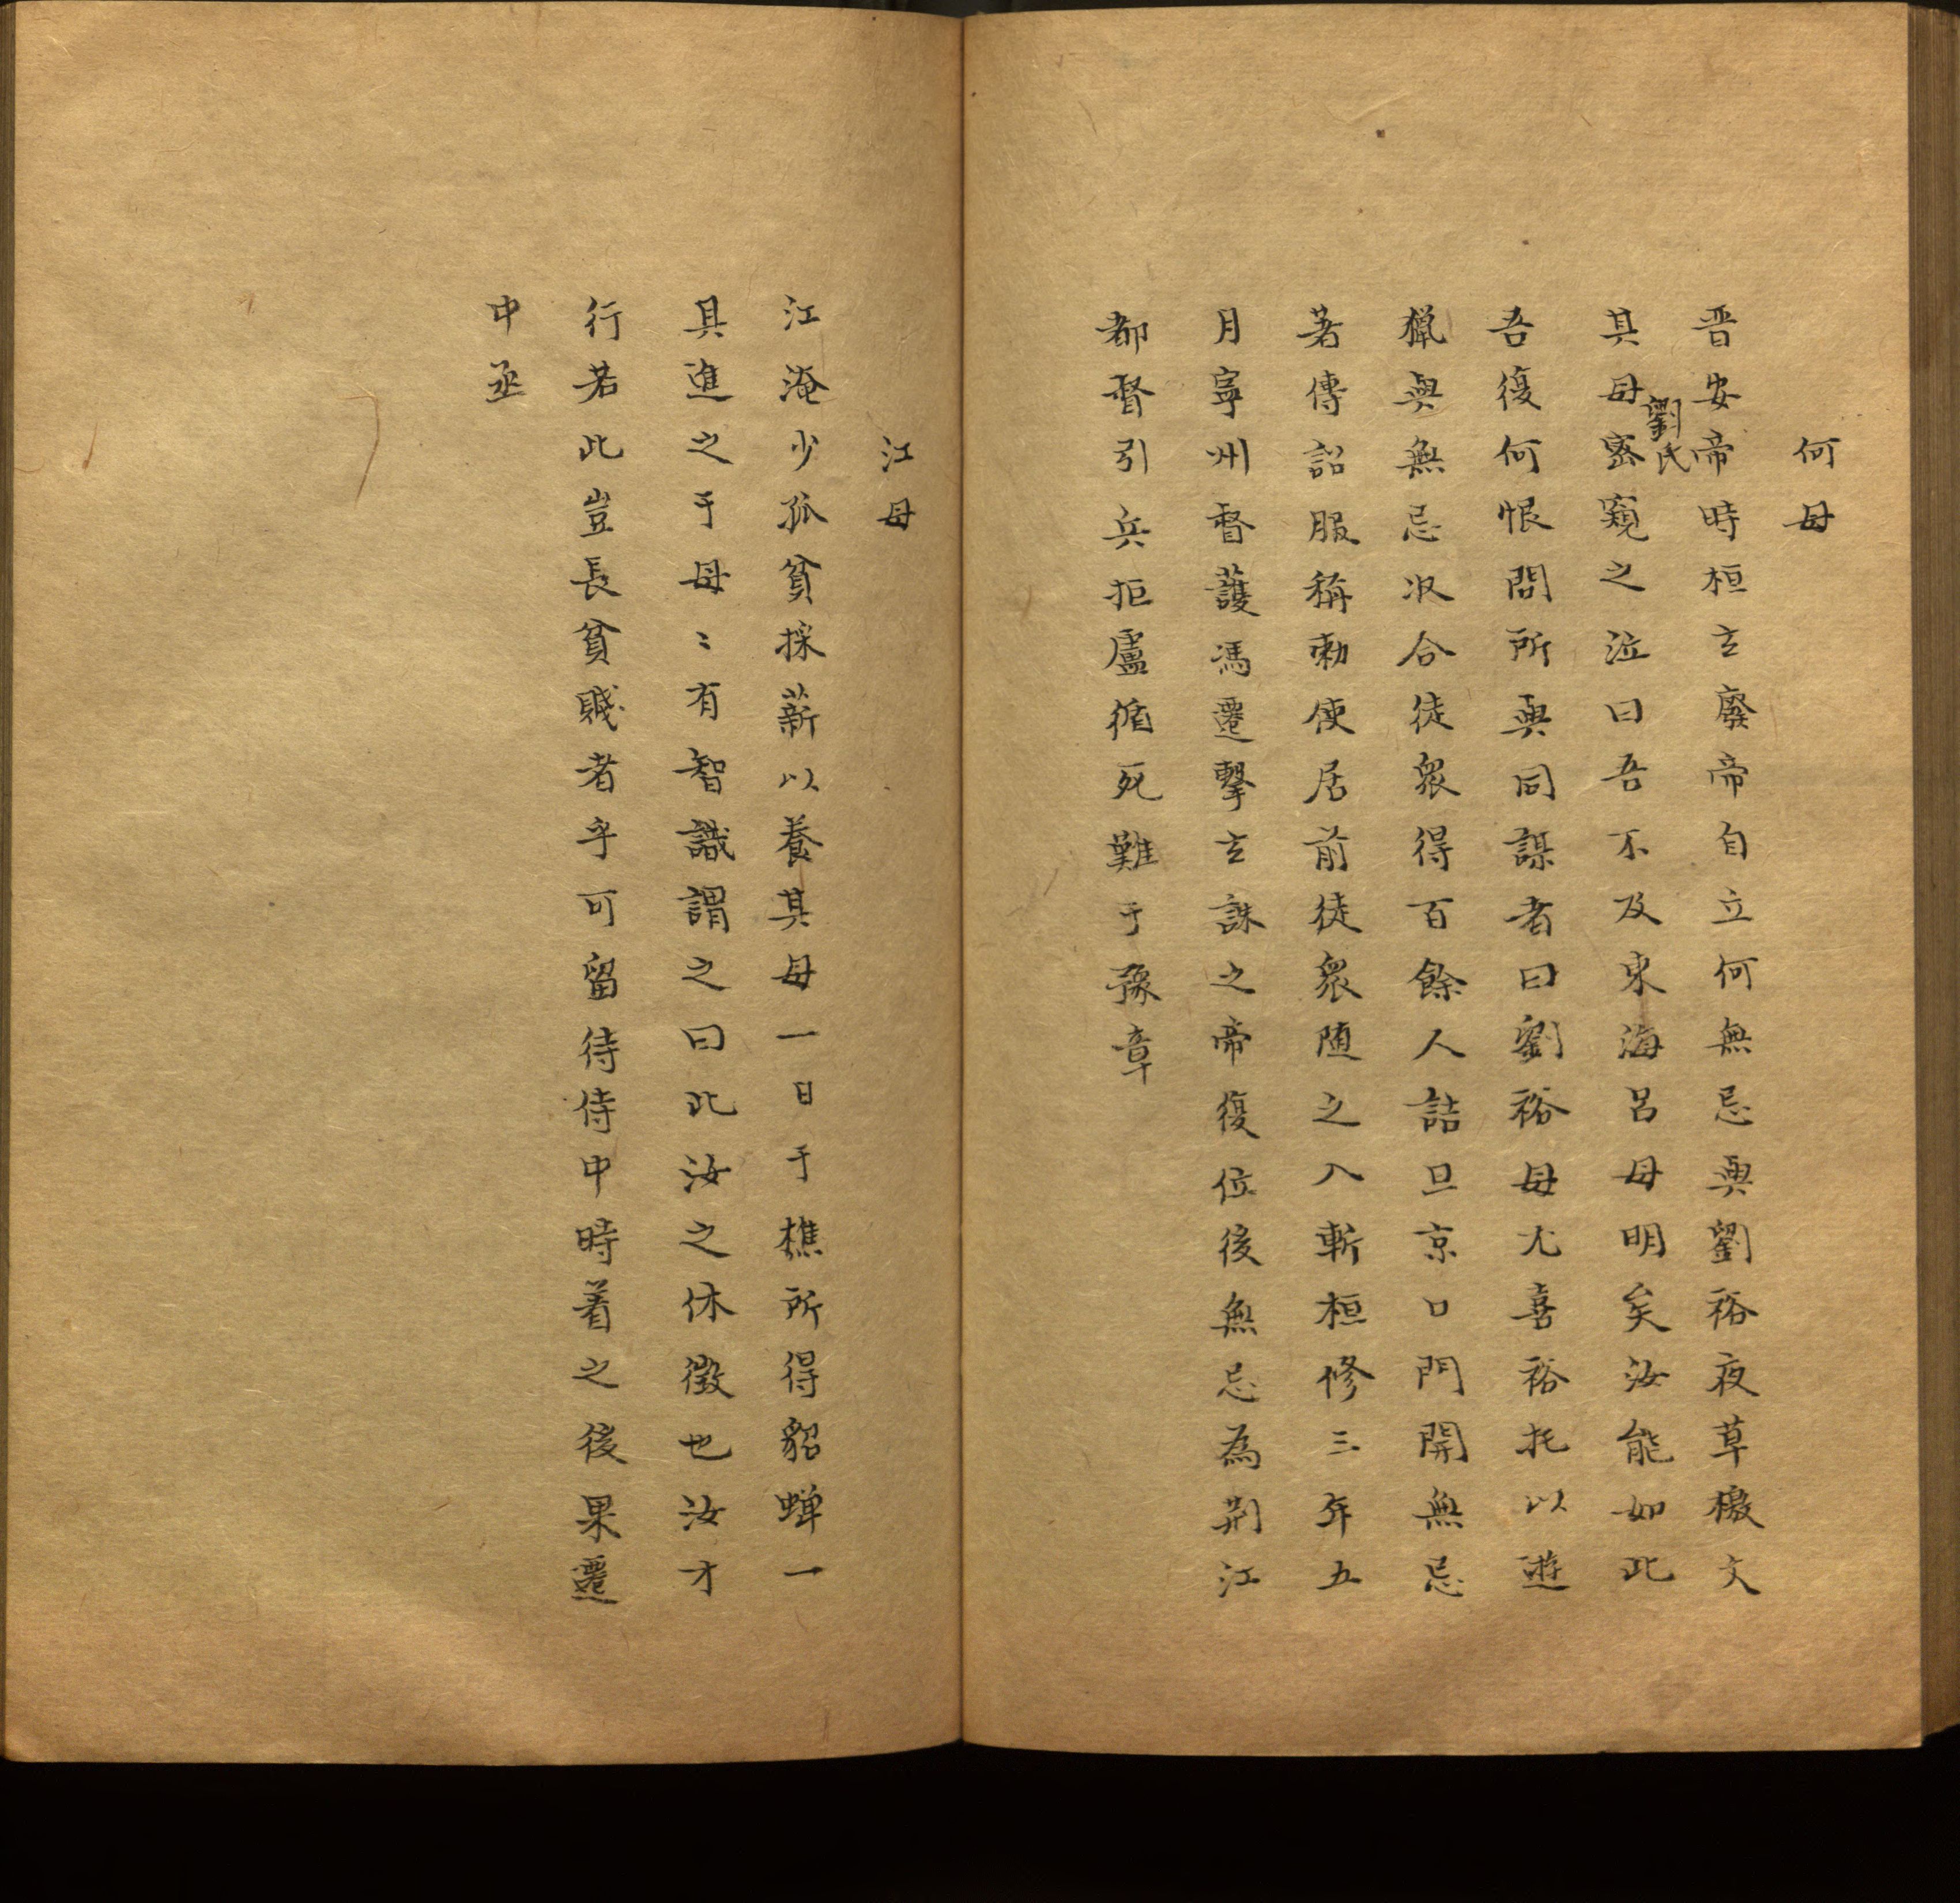 何母
晋安帝時桓玄廢帝自立何無忌與劉裕夜草檄文
其母劉氏密窺之泣曰吾不及東海呂母明矣汝能如此
吾復何恨問所與同謀者曰劉裕母尤喜裕托以遊
獵與無忌収合徒衆得百餘人詰旦京口門開無忌
著傳詔服稱勅使居前徒衆随之入斬桓修三年五
月寧州督護馮遷擊玄誅之帝復位後無忌為荆江
都督引兵拒盧循死難于豫章
江母
江淹少孤貧採薪以養其母一日于樵所得貂蝉一
具進之于母〻有智識謂之曰此汝之休徵也汝才
行若此豈長貧賤者乎可留待侍中時着之後果遷
中丞